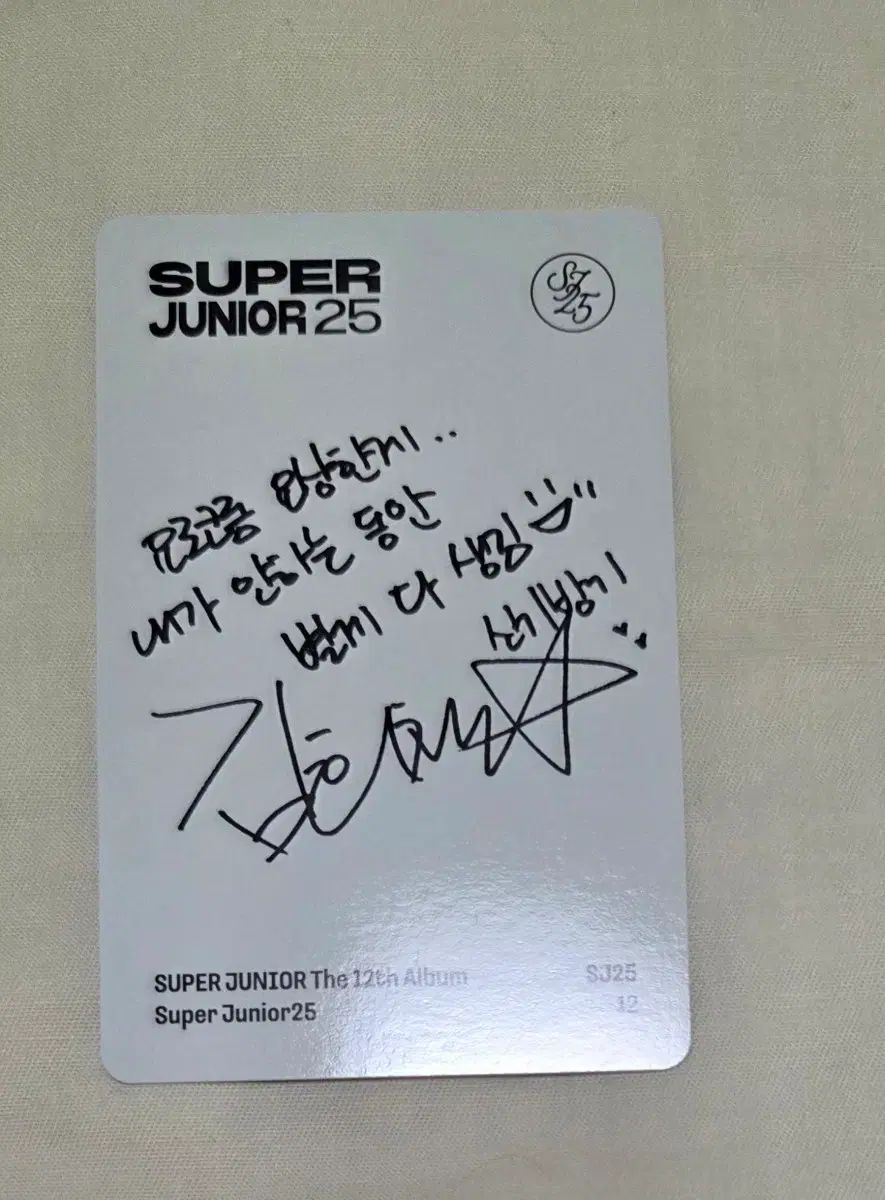 SUPER
JUNIOR25
SJ
25
요로콤 요상한게..
내가 안하는 동안
별게 다 생김
신기방기
SUPER JUNIOR The 12th Album
Super Junior25
SJ25
12